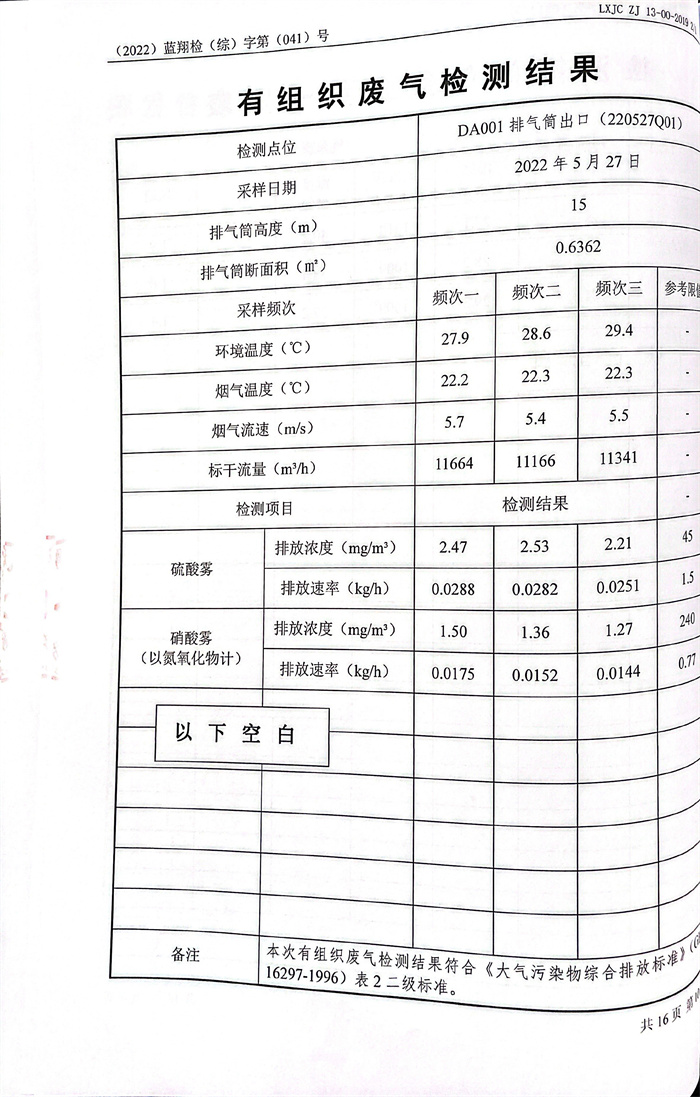 LXJC ZJ 13-00-2019
(2022) 蓝翔检(综)字第(041)号
有组织废气检测结果
检测点位 DA001 排气筒出口(220527Q01)
采样日期 2022 年 5 月 27 日
排气筒高度(m) 15
排气筒断面积(㎡) 0.6362
采样频次 频次一 频次二 频次三 参考限值
环境温度(℃) 27.9 28.6 29.4 -
烟气温度(℃) 22.2 22.3 22.3 -
烟气流速(m/s) 5.7 5.4 5.5 -
标干流量(m³/h) 11664 11166 11341 -
检测项目 检测结果 -
硫酸雾 排放浓度(mg/m³) 2.47 2.53 2.21 45
排放速率(kg/h) 0.0288 0.0282 0.0251 1.5
硝酸雾
(以氮氧化物计)
排放浓度(mg/m³) 1.50 1.36 1.27 240
排放速率(kg/h) 0.0175 0.0152 0.0144 0.77
以下空白
备注
本次有组织废气检测结果符合《大气污染物综合排放标准》(
16297-1996)表 2 二级标准。
共 16 页 第